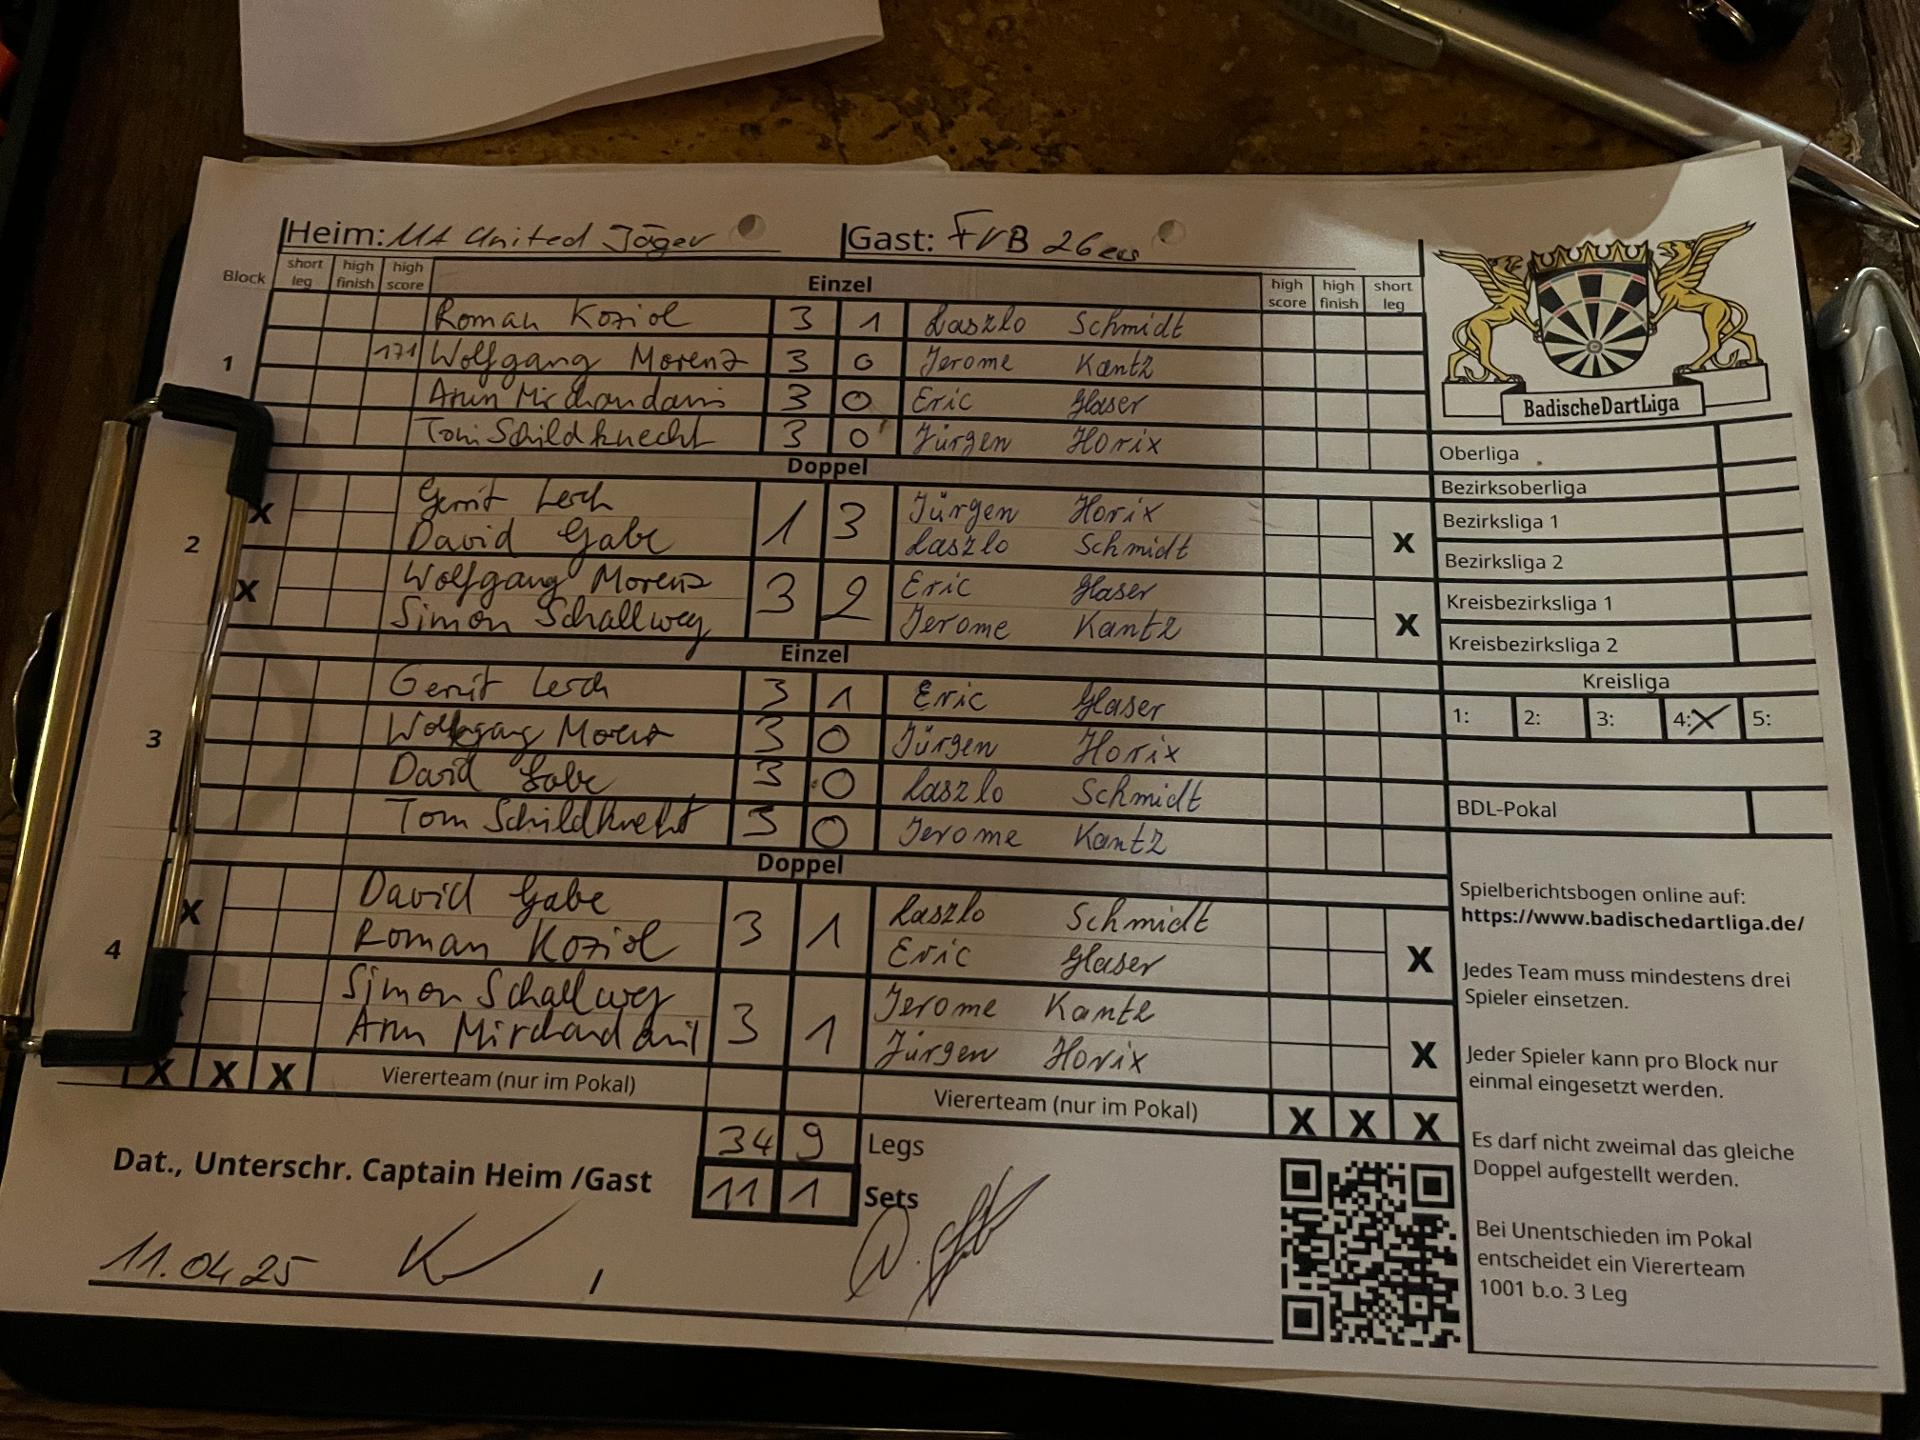 Heim: MA United Jäger Gast: FVB 26ers
Block short leg high finish high score Einzel high score high finish short leg
Roman Koziol 3 1 Laszlo Schmidt
1 171 Wolfgang Morenz 3 0 Jerome Kantz
Arun Mirchandani 3 0 Eric Glaser
Tom Schildknecht 3 0 Jürgen Horix
Doppel
Gerrit Lesch Jürgen Horix
2 X 1 3 X
David Gabe Laszlo Schmidt
Wolfgang Morenz Eric Glaser
X 3 2 X
Simon Schallweg Jerome Kantz
Einzel
Gerrit Lesch 3 1 Eric Glaser
3 Wolfgang Morenz 3 0 Jürgen Horix
David Gabe 3 0 Laszlo Schmidt
Tom Schildknecht 3 0 Jerome Kantz
Doppel
David Gabe Laszlo Schmidt
X 3 1 X
4 Roman Koziol Eric Glaser
Simon Schallweg Jerome Kantz
3 1 X
Arun Mirchandani Jürgen Horix
X X X Viererteam (nur im Pokal) Viererteam (nur im Pokal) X X X
34 9 Legs
Dat., Unterschr. Captain Heim /Gast 11 1 Sets
11.04.25
BadischeDartLiga
Oberliga
Bezirksoberliga
Bezirksliga 1
Bezirksliga 2
Kreisbezirksliga 1
Kreisbezirksliga 2
Kreisliga
1: 2: 3: 4: X 5:
BDL-Pokal
Spielberichtsbogen online auf:
https://www.badischedartliga.de/
Jedes Team muss mindestens drei
Spieler einsetzen.
Jeder Spieler kann pro Block nur
einmal eingesetzt werden.
Es darf nicht zweimal das gleiche
Doppel aufgestellt werden.
Bei Unentschieden im Pokal
entscheidet ein Viererteam
1001 b.o. 3 Leg